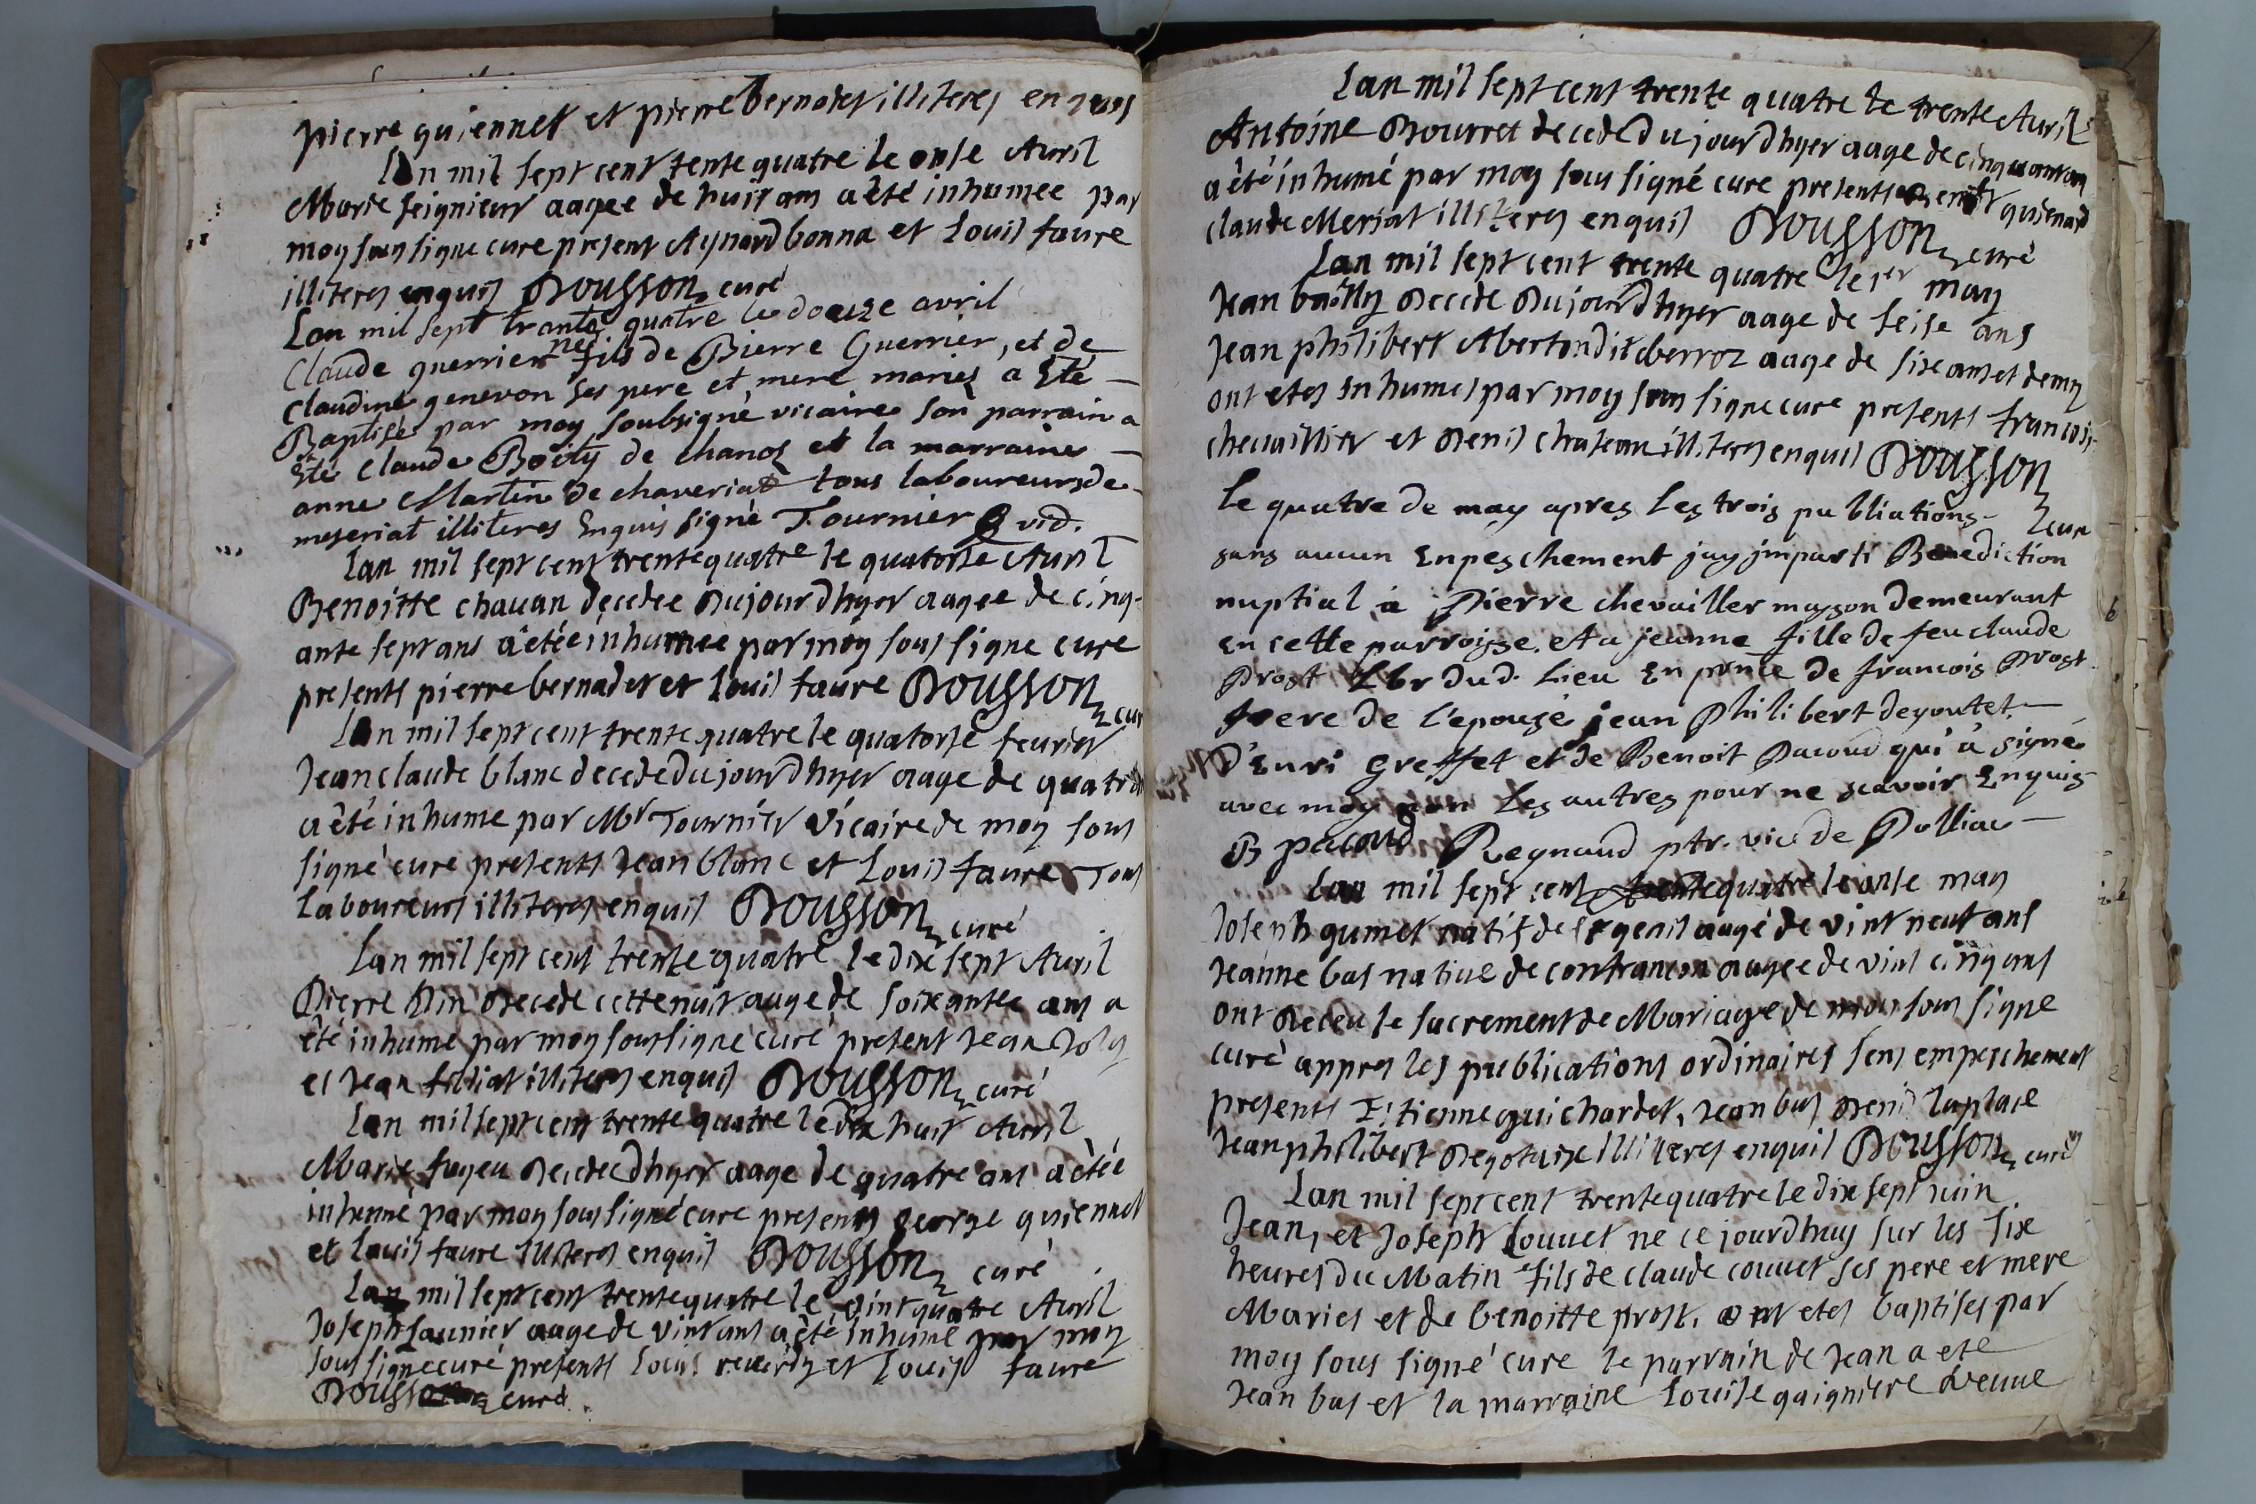 pierre quiennet et pierre bernadet illiteres enquis
Lan mil sept cent tente quatre le onse Avril
Marie seignieur aagee de huit ans a été inhumee par
moy sous signe cure present Aynard bonna et Louis faure
illiteres enquis Dousson curé
Lan mil sept trante quatre le douze avril
Claude guerrier fils de Pierre Guerrier, et de
Claudine genevon ses pere et mere mariés a Eté
Baptisé par moy soubsigné vicaire son parrain a
Eté Claude Boity de chanos et la marraine
anne Martin de chaveriat tous laboureurs de
meseriat illiteres Enquis signé Tournier vic.
Lan mil sept cent trente quatre le quatorse Avril
Benoitte chavan decedee dujourdhyer aagee de cinq-
ante sept ans a étée inhumee par moy sous signe cure
presents pierre bernadet et Louis faure Dousson cur
Lan mil sept cent trente quatre le quatorse feurier
Jean claude blanc decede dujourdhyer aage de quatre
a été inhume par Mr Tournier vicaire de moy sous
signé cure presents Jean blanc et Louis faure Tous
Laboureurs illiteres enquis Dousson curé
Lan mil sept cent trente quatre le dix sept Avril
Pierre Pin decede cette nuit aage de soixantee ans a
été inhumé par moy sous signé curé present Jean Joly
et Jean filliat illiteres enquis Dousson curé
Lan mil sept cent trente quatre le dix huit Avril
Marie fuyeu decedee dhyer aage de quatre ans a étée
inhumé par moy sous signé cure presents george quiennet
et Louis faure illiteres enquis Dousson curé
Lan mil sept cent trente quatre le vint quatre Avril
Joseph saunier aage de vint ans a été inhumé par moy
sous signe curé presents Louis reverdy et Louis faure
Dousson curé
Lan mil sept cent trente quatre le trente Avril
Antoine Bourret decede dujourdhyer aage de cinquante ans
a été inhumé par moy sous signé cure presents quienard
claude Meriat illiteres enquis Dousson curé
Lan mil sept cent trente quatre le 1er may
Jean bailly decede dujourdhyer aage de seise ans
Jean philibert Aberton dit berroz aage de six ans et demy
ont etes inhumes par moy sous signe cure presents francois
chevaillier et denis chateau illiteres enquis Dousson
cur
Le quatre de may apres les trois publiations
sans aucun Enpeschement jay imparti Benediction
nuptial a Pierre chevailler masson demeurant
en cette parroisse, et a jeanne fille de feu claude
Prost Lbr dud. Lieu En pnce de francois Prost
frere de l'epouse jean Philibert degoutet
D'Enri greffet et de Benoit Pacoud qui a signé
avec moy non les autres pour ne scavoir Enquis
B pacoud Regnaud ptr. vic de Polliac
Lan mil sept cent trente quatre le onse may
Joseph gumet natif de aagé de vint neuf ans
Jeanne bas native de confrancon aagee de vint cinq ans
ont Receu le sacrement de Mariage de moy sous signe
curé appres les publications ordinaires sens empeschement
presents Estienne guichardet, Jean bas Denis laplace
Jean philibert degotaix illiteres enquis Dousson curé
Lan mil sept cent trente quatre le dix sept juin
Jean, et Joseph Couuet ne ce jourdhuy sur les six
heures du Matin fils de claude couuet ses pere et mere
Maries et de benoitte prost, ont etes baptises par
moy sous signé cure le parrain de Jean a ete
Jean bas et la marraine Louise gaigniere veuue